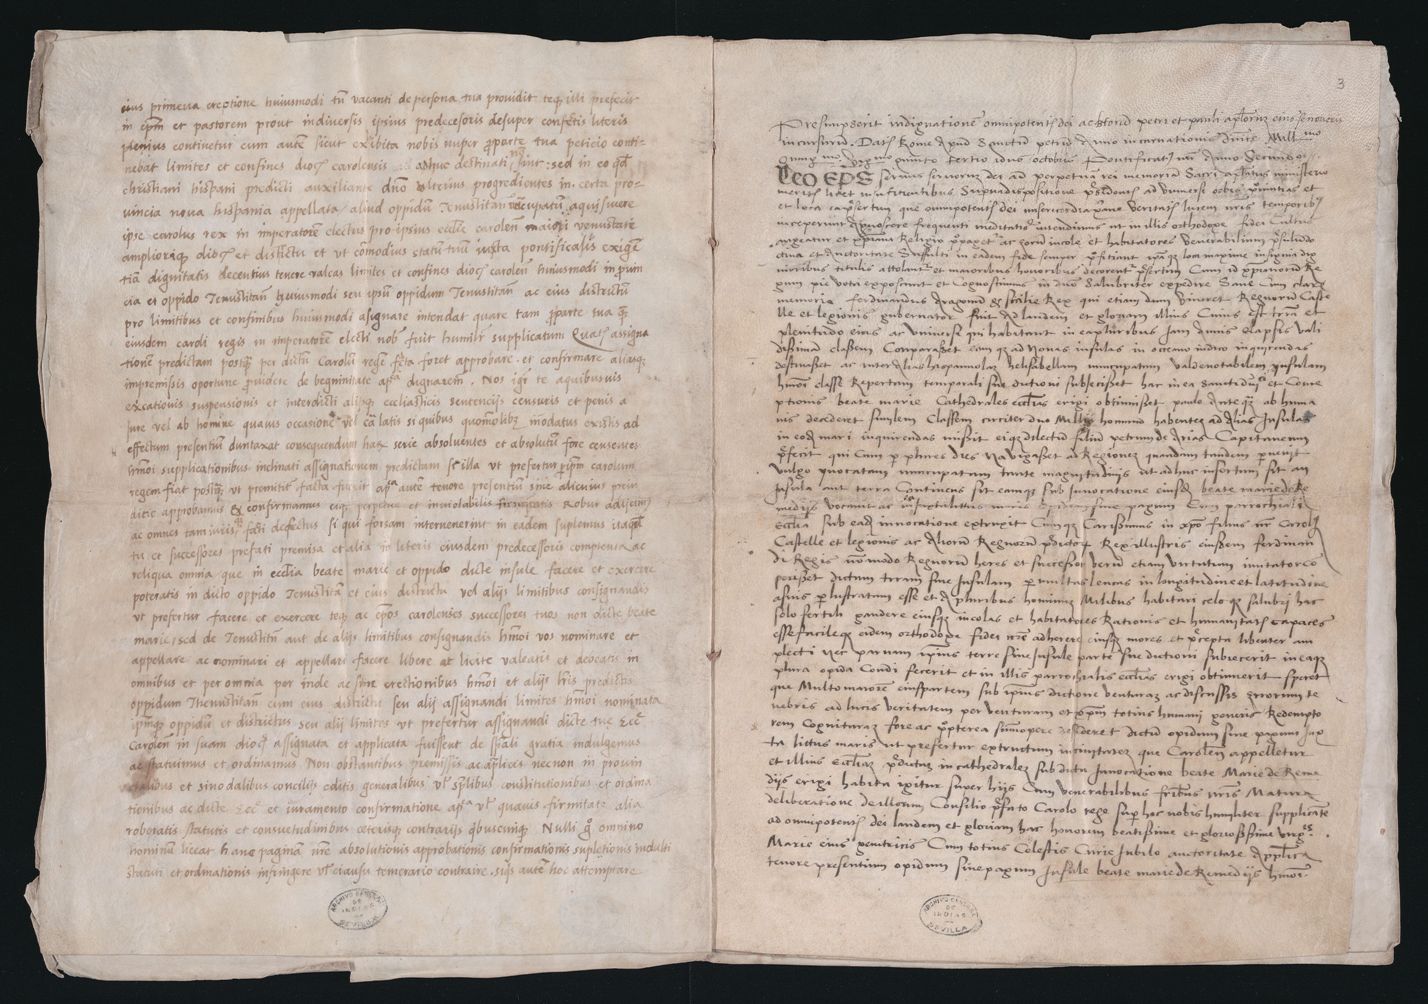 eius primeva erectione huiusmodi tu vacanti de persona tua providit teq illi prefecit
in epm et pastorem prout in diversis ipsius predecessoris desuper confectis literis
plenius continetur cum aute sicut exibita nobis nuper pparte tua peticio conti
nebat limites et confines dioc carolensis assignate destinati no sint sed in eo qd
christiani hispani predicti auxiliante dno ulterius progredientes in certa pro
vincia nova hispania appellata / aliud oppidu Tenustitan nucupatu aquisivere
ipse carolus rex in imperatore electus pro ipsius ecctie carolen maiori venustate
amplioriq dioc et districtu et ut comodius statu tuu iuxta pontificalis exige
tia dignitatis decentius tenere valeas limites et confines dioc carolen huiusmodi in provin
cia et oppido Tenustitan huiusmodi seu ipsu oppidum Tenustitan ac eius districtu
pro limitibus et confinibus huiusmodi asignare intendat quare tam pparte tua q
eiusdem caroli regis in imperatore electi nob fuit humilr supplicatum Quat assigna
tione predictam postq per dictu Carolu rege fcta foret approbare et confirmare aliasq
impremissis oportune providere de begninitate apca dignarem. Nos igr te aquibusvis
excationis suspensionis et interdicti alijsq eccliasticis sentencijs censuris et penis a
iure vel ab homine quavis occasione vel ca latis si quibus quomolibz inodatus existis ad
effectum presentiu duntaxat consequendum haz serie absolventes et absolutu fore censentes
hmoi supplicationibus inclinati assignationem predictam si illa ut prefertur p ipm carolum
regem fiat postq ut premittit facta fuerit apca aute tenore presentiu sine alicuius preiu
dicio approbamus & confirmamus eiq perpetue et inviolabilis firmitatis robur adijcim
ac omnes tam iuris q facti defectus si qui forsam intervenerint in eadem suplemus itaqd
tu et successores prefati premisa et alia in literis eiusdem predecessoris comptenta ac
reliqua omnia que in ecclia beate marie et oppido dicte insule facere et exercere
poteratis in dicto oppido Tenustitan et eius districtu vel alijs limitibus consignandis
ut prefertur facere et exercere teq ac epos carolenses successores tuos non dicte beate
marie sed de Tenustitan aut de alijs limitibus consignandis hmoi vos nominare et
appellare ac nominari et appellari facere libere at licite valeatis et debeatis in
omnibus et per omnia per inde ac sine erectionibus hmoi et alijs lris predictis
oppidum Thenustitan cum eius districtu seu alij assignandi limites hmoi nominata
ipmq oppidu et districtus seu alij limites ut prefertur assignandi dicte tue Ecc
Carolen in suam dioc assignata et applicata fuissent de spali gratia indulgemus
ac statuimus et ordinamus Non obstantibus premissis ac aplicis necnon in provin
cialibus et sinodalibus concilijs editis generalibus vl spalibus constitutionibus et ordina
tionibus ac dicte Ecc et iuramento confirmatione apca vl quavis firmitate alia
roboratis statutis et consuetudinibus ceterisq contrarijs quibuscunq Nulli go omnino
hominu liceat hanc paginam nre absolutionis approbationis confirmationis supletionis indulti
statuti et ordinationis infringere vl ei ausu temerario contraire. siqs aute hoc attemptare
ARCHIVO GENERAL
DE
INDIAS
SEVILLA
3
Presumpserit indignatione omnipotentis dei ac btorud petri et pauli aplorum eius se noverit
incursurud. Datis Rome apud Sanctum petrud anno incarnationis dnice Mill mo
quing mo Decimo quinto Tertio idus octobris Pontificat nri anno Secundo
LEO EPS Servus servorum dei ad perpetuam rei memoria Sacri aplatus ministerio
meritis licet insufficientibus Supna dispositione presidentes ad universas orbis provintias et
et loca ea presertim que omnipotentis dei misericordia pvenire veritatis lucem nris temporib
inceperint agnoscere frequenti meditatis intendimus ut in illis orthodoxe fidei Cultus
augeatur et xpiana Religio propaget ac eorud incole et habitatores Venerabilium presuludo
ctrina et auctoritate Suffulti in eadem fide semper proficiant ipsaq loca maxime insignia dig
nioribus titulis attolant et maioribus honoribus decorent presertim Cum id xpianorud Re
gum pie vota exposcunt et Cognoscimus in dno Salubriter expedire Sane Cum clare
memorie ferdinandus Aragonud & sicilie Rex qui etiam dum viveret Regnorud Caste
lle et legionis gubernator fuit ad laudem et gloriam illius Cuius est terra et
plenitudo eius ac universi qui habitant in ea pluribus iam annis elapsis vali
dissimam classem Comparasset eamq ad Novas insulas in occeano indico inquirendas
destinasset ac inter alias hispaniolaz helisabellam nuncupatam valde notabilem insulam
hmoi classe Repertam temporali sue dictioni subiecisset hac in ea Sanctudij et Conce
ptionis beate marie Cathedrales ecclias erigi obtinuisset paulo anteq ab huma
nis decederet similem Classem circiter duo Millia hominud habentem ad alias Insulas
in eod mari inquirendas misit eiq dilectud filiud petrum de Arias Capitaneum
prefecit qui Cum p plures dies navigasset ad Regionez quandam tandem pvenit
vulgo yucatanz nuncupatam tante magnitudinis ut ad huc incertum sit an
Insula aut terra Continens sit eamq sub Invocatione eiusd beate marie de Re
medijs vocavit ac in ea iuxta littus maris opidum sive pagum Cum parrochiali
Ecclia sub ead invocatione extruxit Cumq Carissimus in xpo filius nr Carol
Castelle et legionis ac aliorud Regnorud predictorz Rex illustris eiusdem ferdinan
di Regis no modo Regnorud heres et successor verud etiam virtutum imitator co
perisset dictum terram sive Insulam p multas leucas in longitudine et latitudine
a suis p lustratam esse et a pluribus hominuz Milibus habitari celo q salubri hac
solo fertili gaudere eiusq incolas et habitatores Rationis et humanitatis Capaces
esse facileq eidem orthodoxe fidei nre adherere eiusq mores et precepta libenter am
plecti nec parvam ipsius terre sive Insule parte sue dictioni subiecerit in eaq
plura opida Condi fecerit et in illis parrochialis ecclias erigi obtinuerit speret
que Multo maiorem eiuspartem sub ipsius dictione venturaz ac discussis errorum te
nebris ad lucis veritatem per venturam et xpm totius humani generis Redempto
rem Cognituraz fore ac propterea summopere desideret dictud opidum sive pagum Jux
ta littus maris ut prefertur extructum in civitatez que Carolen appelletur
et illius Eccliaz predictaz in cathedralez sub dicta Invocatione beate Marie de Reme
dijs erigi habita igitur super hijs Cum venerabilibus fribus nris Matura
deliberatione de illorum Consilio prefato Carolo rege super hac nobis humiliter supplicate
ad omnipotentis dei laudem et gloriam hac honorem beatissime et gloriosissime virgis
Marie eius genitricis Cum totius Celestis Curie Jubilo auctoritate Applica
tenore presentium opidum sive pagum Insule beate marie de Remedijs hmoi
ARCHIVO GENERAL
DE
INDIAS
SEVILLA